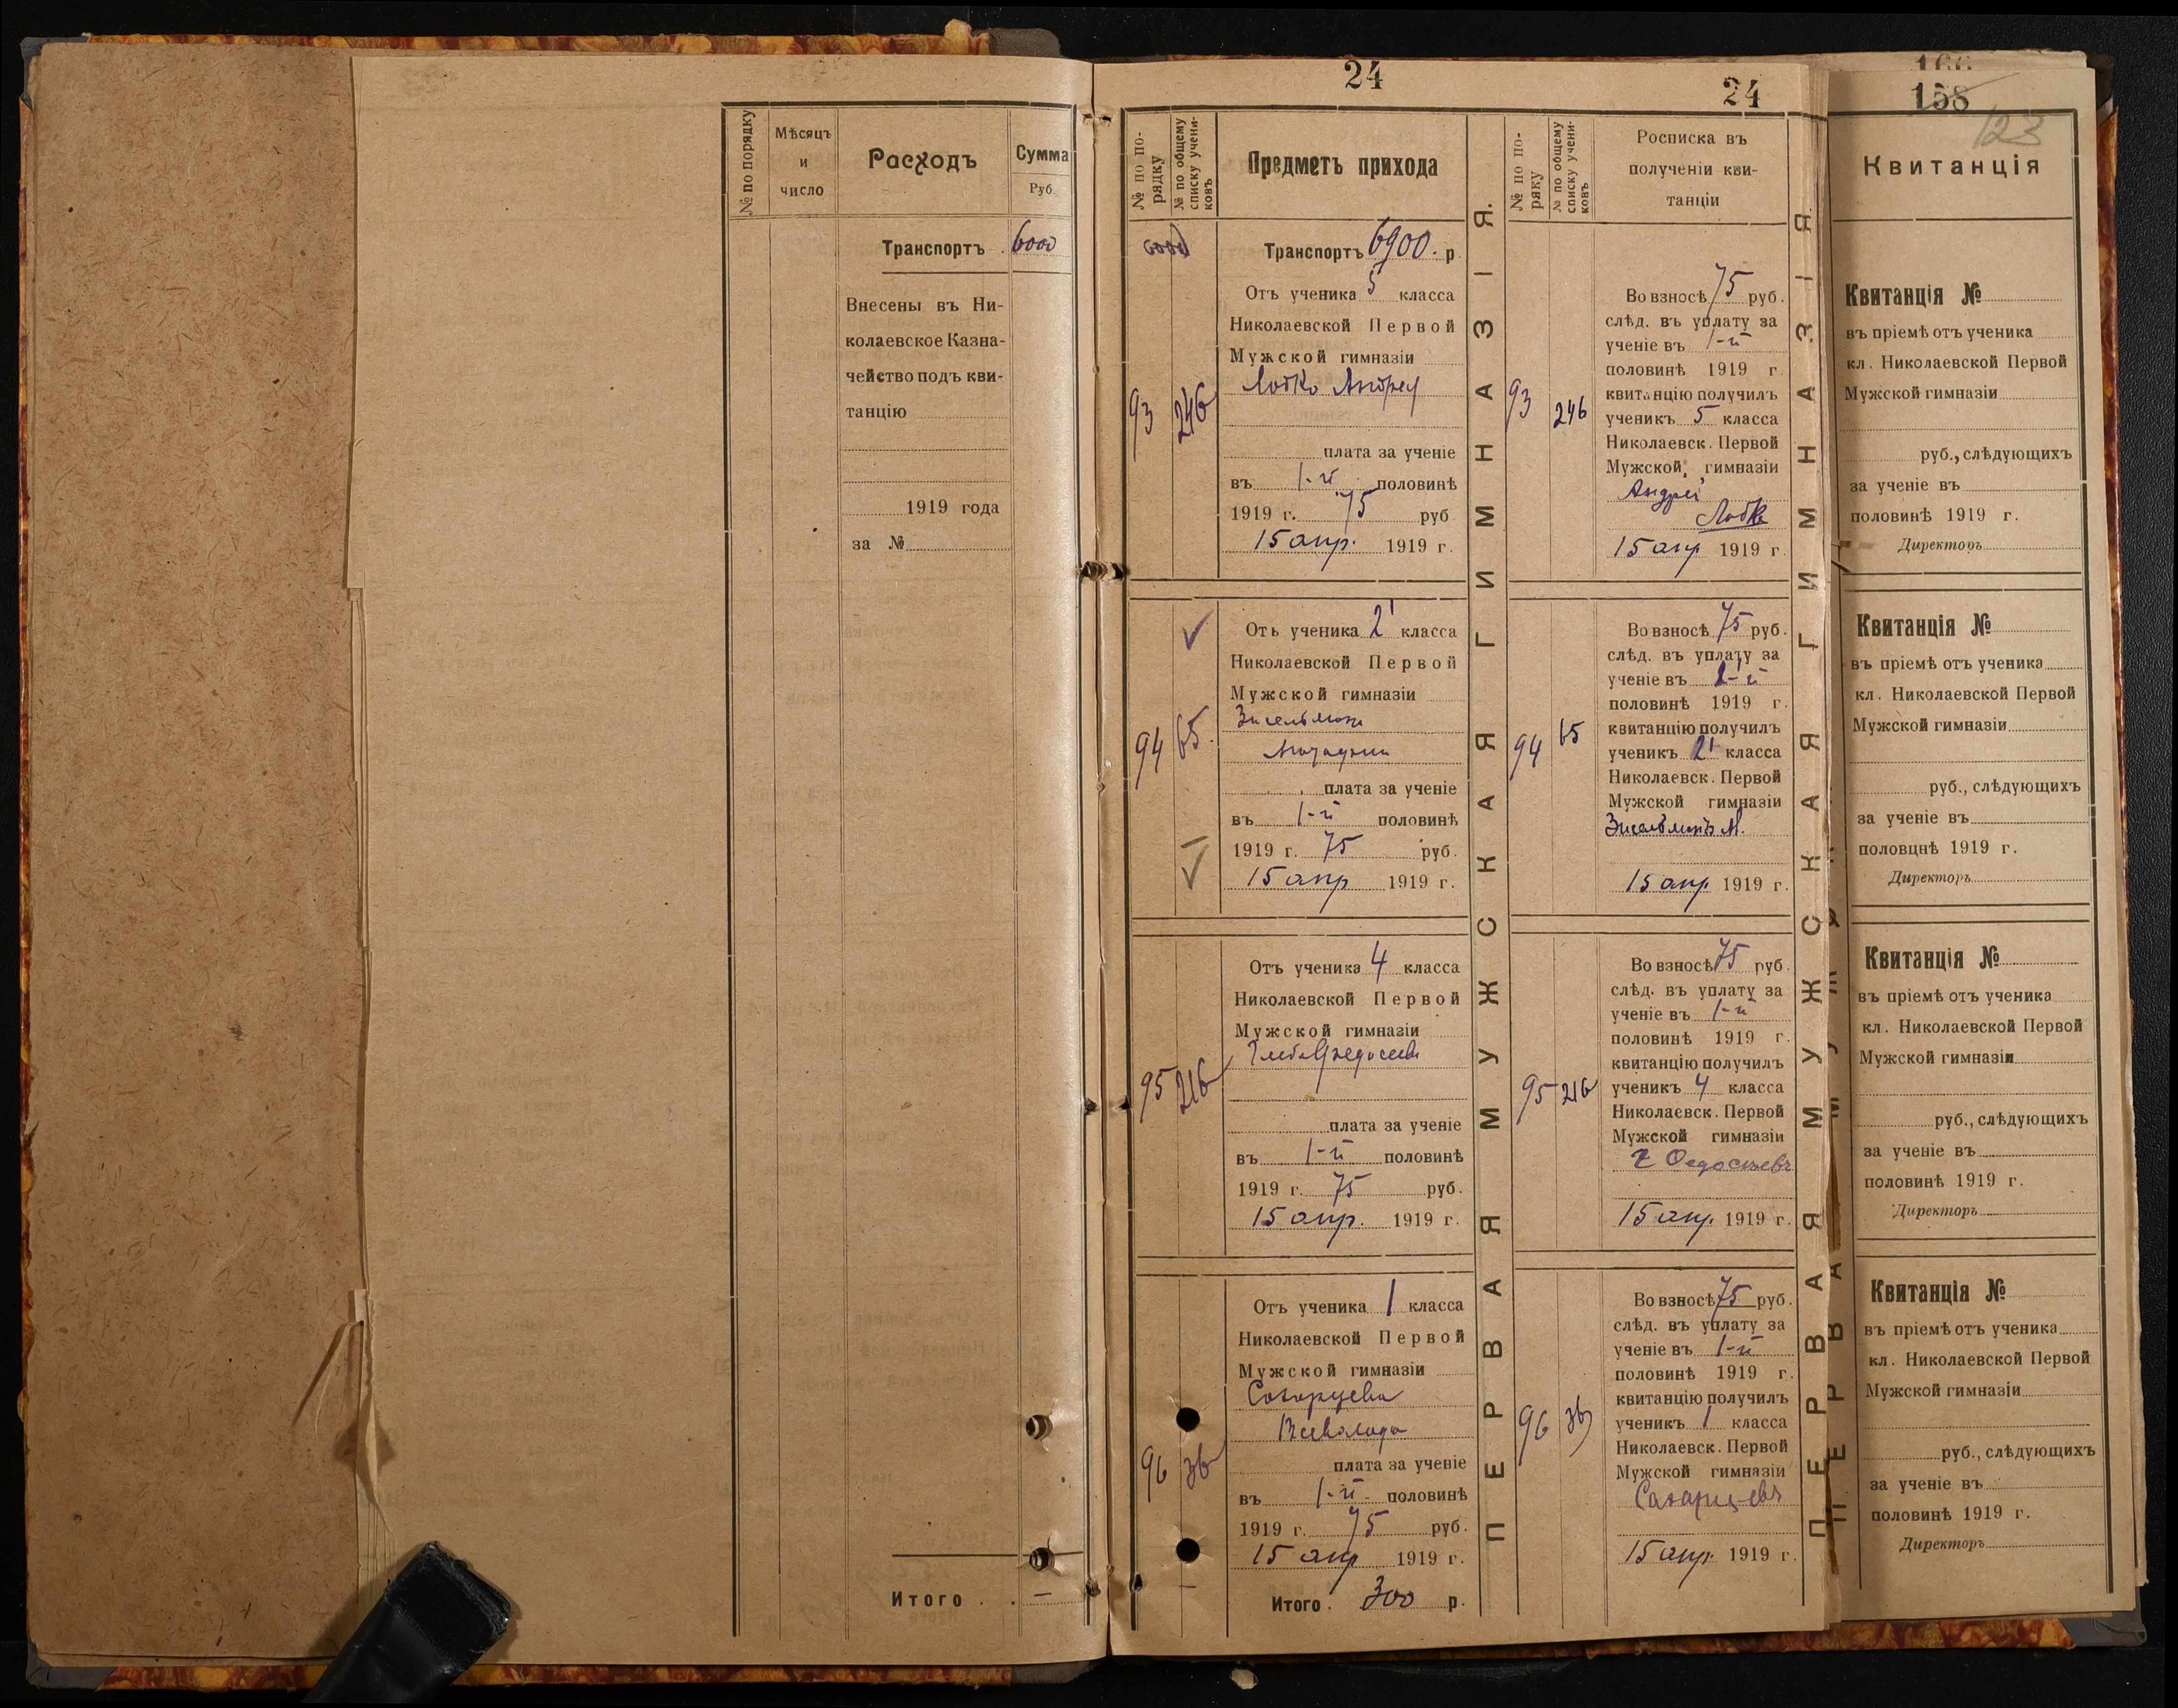 № по порядку
Мѣсяцъ
и
число
Расходъ
Сумма
Руб.
Транспортъ . 6000
Внесены въ Ни-
колаевское Казна-
чейство подъ кви-
танцію
1919 года
за №
Итого . . —
24
№ по по-
рядку
№ по общему
списку учени-
ковъ
Предметъ прихода
6000
Транспортъ 6900. р
93
246
Отъ ученика 5 класса
Николаевской Первой
Мужской гимназіи
Лобко Андрей
плата за ученіе
въ 1-й половинѣ
1919 г. 75 руб
15 апр. 1919 г.
94
65.
Отъ ученика 2¹ класса
Николаевской Первой
Мужской гимназіи
Зисельмана
плата за ученіе
въ 1-й половинѣ
1919 г. 75 руб.
15 апр 1919 г.
95
216
Отъ ученика 4 класса
Николаевской Первой
Мужской гимназіи
плата за ученіе
въ 1-й половинѣ
1919 г. 75 руб.
15 апр. 1919 г.
96
36
Отъ ученика 1 класса
Николаевской Первой
Мужской гимназіи
Всеволода
плата за ученіе
въ 1-й половинѣ
1919 г. 75 руб.
15 апр 1919 г.
Итого . 300 р.
ПЕРВАЯ МУЖСКАЯ ГИМНАЗІЯ.
24
№ по по-
ряку
№ по общему
списку учени-
ковъ
Росписка въ
полученіи кви-
танціи
93
246
Во взносѣ 75 руб.
слѣд. въ уплату за
ученіе въ 1-й
половинѣ 1919 г.
квитанцію получилъ
ученикъ 5 класса
Николаевск. Первой
Мужской гимназіи
Андрей
Лобко
15 апр 1919 г.
94
65
Во взносѣ 75 руб.
слѣд. въ уплату за
ученіе въ 1-й
половинѣ 1919 г.
квитанцію получилъ
ученикъ 2¹ класса
Николаевск. Первой
Мужской гимназіи
Зисельманъ М.
15 апр. 1919 г.
95
216
Во взносѣ 75 руб.
слѣд. въ уплату за
ученіе въ 1-й
половинѣ 1919 г.
квитанцію получилъ
ученикъ 4 класса
Николаевск. Первой
Мужской гимназіи
Г Ѳедосѣевъ
15 апр. 1919 г.
96
36
Во взносѣ 75 руб.
слѣд. въ уплату за
ученіе въ 1-й
половинѣ 1919 г.
квитанцію получилъ
ученикъ 1 класса
Николаевск. Первой
Мужской гимназіи
15 апр. 1919 г.
ПЕРВАЯ МУЖСКАЯ ГИМНАЗІЯ.
166
158
123
Квитанція
Квитанція №
въ пріемѣ отъ ученика
кл. Николаевской Первой
Мужской гимназіи
руб., слѣдующихъ
за ученіе въ
половинѣ 1919 г.
Директоръ
Квитанція №
въ пріемѣ отъ ученика
кл. Николаевской Первой
Мужской гимназіи
руб., слѣдующихъ
за ученіе въ
половцнѣ 1919 г.
Директоръ
Квитанція №
въ пріемѣ отъ ученика
кл. Николаевской Первой
Мужской гимназіи
руб., слѣдующихъ
за ученіе въ
половинѣ 1919 г.
Директоръ
Квитанція №
въ пріемѣ отъ ученика
кл. Николаевской Первой
Мужской гимназіи
руб., слѣдующихъ
за ученіе въ
половинѣ 1919 г.
Директоръ